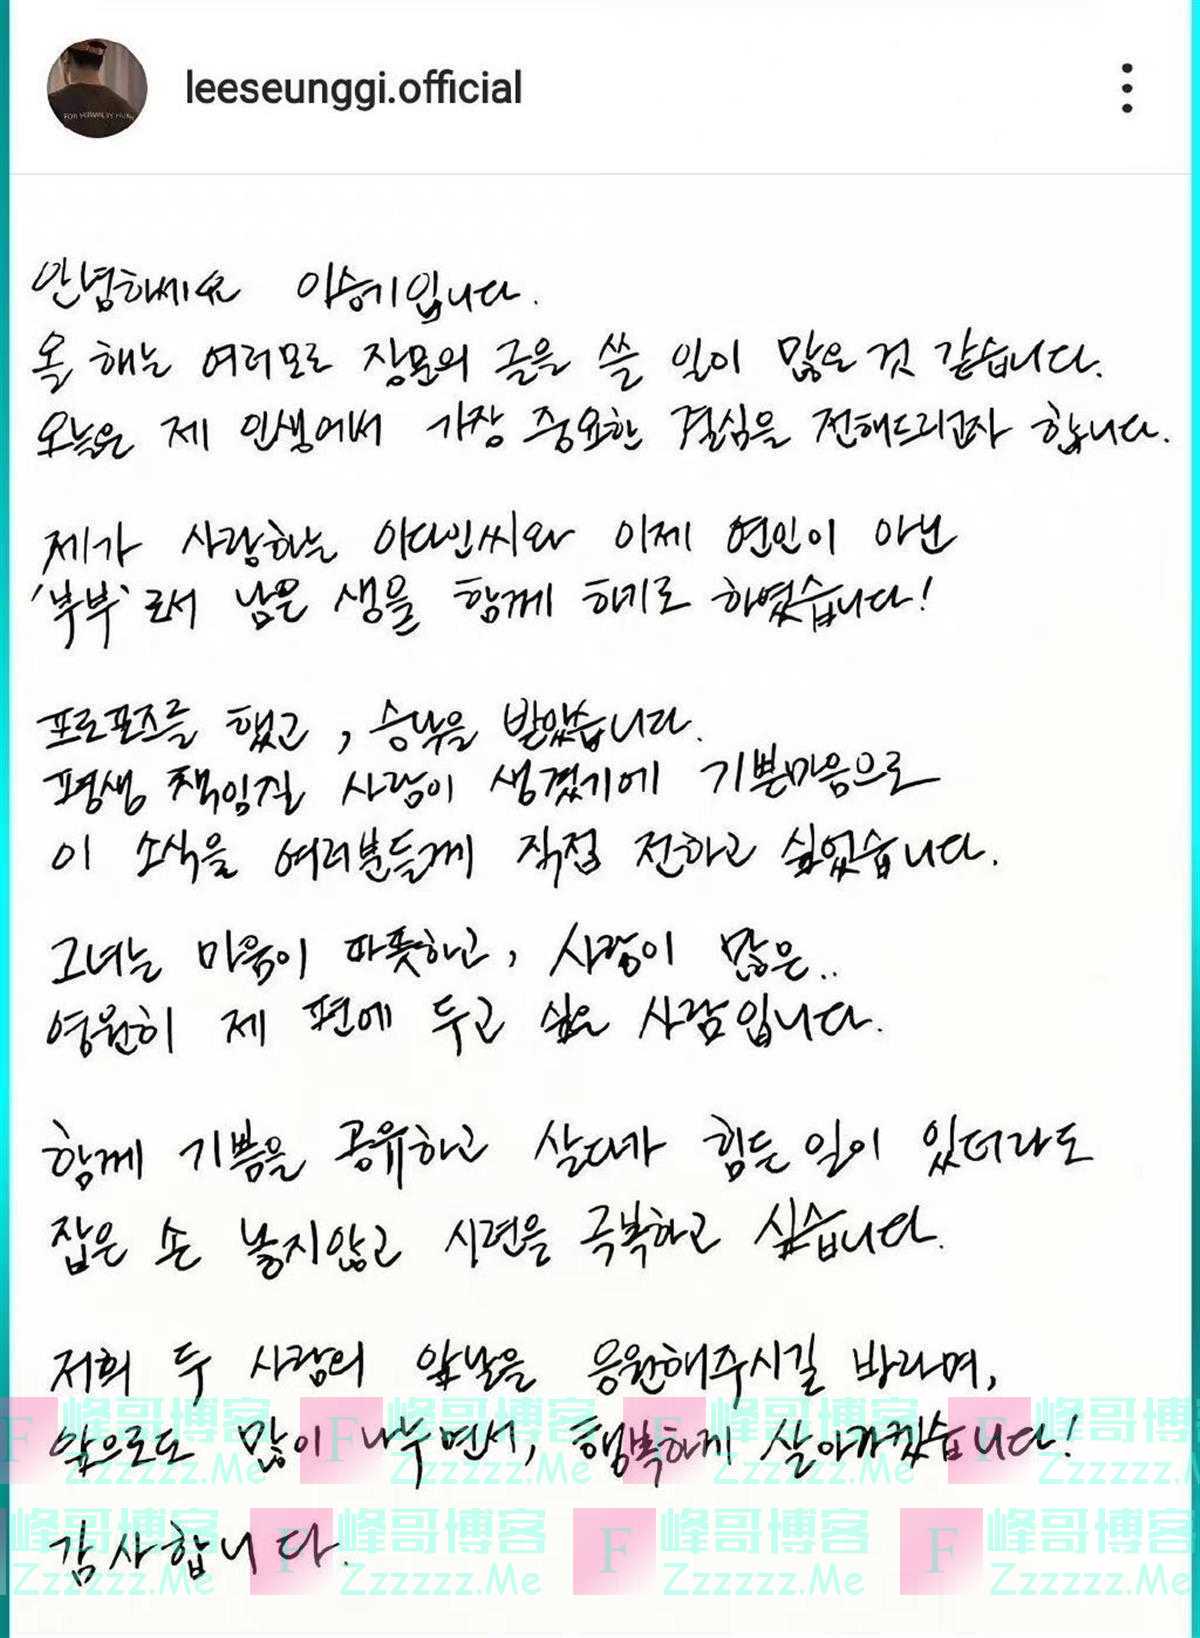 leeseunggi.official
안녕하세요 이승기입니다.
올 해는 여러모로 장문의 글을 쓸 일이 많은 것 같습니다.
오늘은 제 인생에서 가장 중요한 결심을 전해드리고자 합니다.
제가 사랑하는 이다인씨와 이제 연인이 아닌
'부부'로서 남은 생을 함께 하기로 하였습니다!
프로포즈를 했고, 승낙을 받았습니다.
평생 책임질 사람이 생겼기에 기쁜마음으로
이 소식을 여러분들께 직접 전하고 싶었습니다.
그녀는 마음이 따뜻하고, 사랑이 많은..
영원히 제 편에 두고 싶은 사람입니다.
함께 기쁨을 공유하고 살다가 힘든 일이 있더라도
잡은 손 놓지않고 시련을 극복하고 싶습니다.
저희 두 사람의 앞날을 응원해주시길 바라며,
앞으로도 많이 나누면서, 행복하게 살아가겠습니다!
F 峰哥博客 F 峰哥博客 F 峰哥博客 F 峰哥博客
Zzzzzz.Me Zzzzzz.Me Zzzzzz.Me Zzzzzz.M
감사합니다.
峰哥博客 F 峰哥博客 F 峰哥博客 F 峰哥博客
Zzzzzz.Me Zzzzzz.Me Zzzzzz.Me Zzzzzz.Me